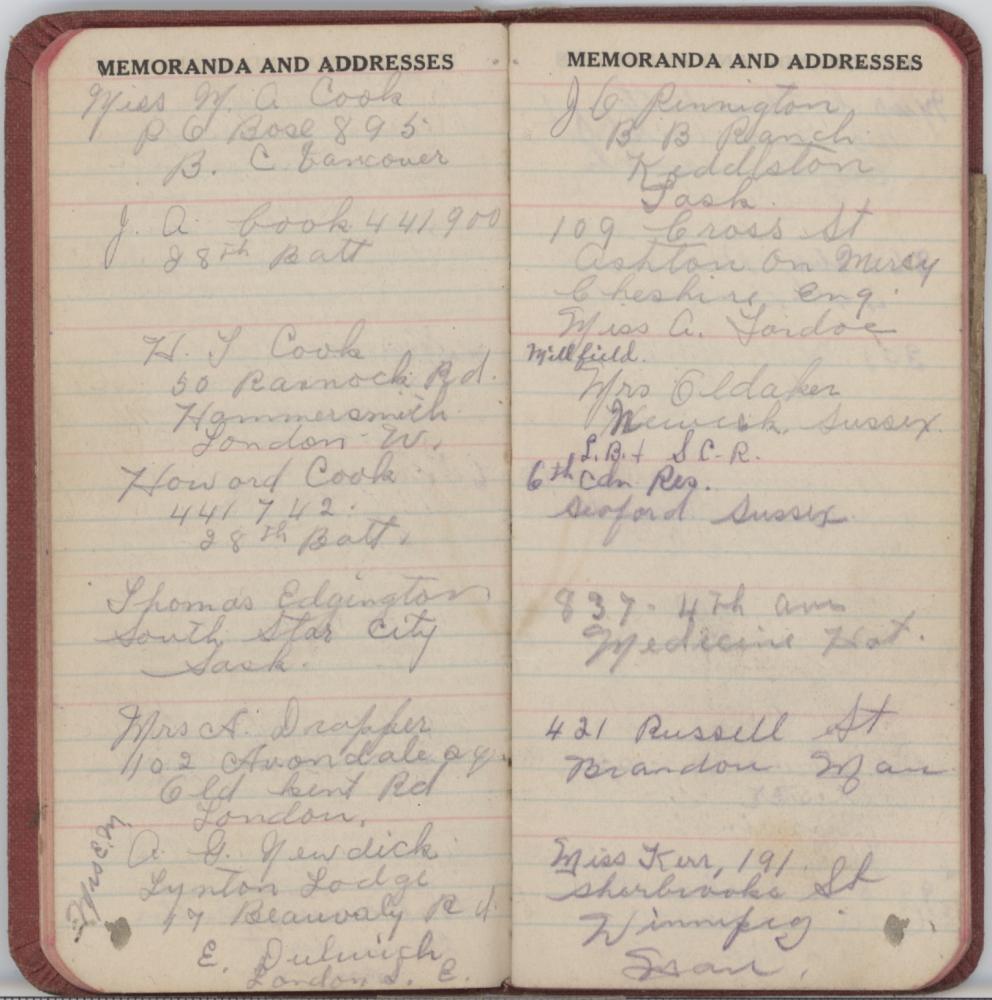 MEMORANDA AND ADDRESSES
Miss M. A Cook
P O Box 895
B. C Vancover
J. A. Cook 441900
28th Batt
H. T Cook
50 Rannock Rd.
Hammersmith
London W.
Howard Cook
441742.
28th Batt.
Thomas Edgington
South Star City
Sask.
Mrs A. Drapper
102 Avondale sq.
Old kent Rd
London.
A. G. Newdick
Lynton Lodge
17 Beauvaly Rd
E. Dulwich
London S. E.
MEMORANDA AND ADDRESSES
J C Pennigton
B B Ranch
Keddleston
Sask.
109 Cross St
Ashton On Mersy
Cheshire, Eng.
Miss A.
Millfield.
Mrs Oldaker
Newick. Sussex.
L.B.+ S C.R.
6th Cdn Res.
Seaford Sussex
837- 4th ave
Medecine Hat.
421 Russell St
Brandon Man
Miss Kerr, 191
Sherbrooke St
Winnipeg
Man.